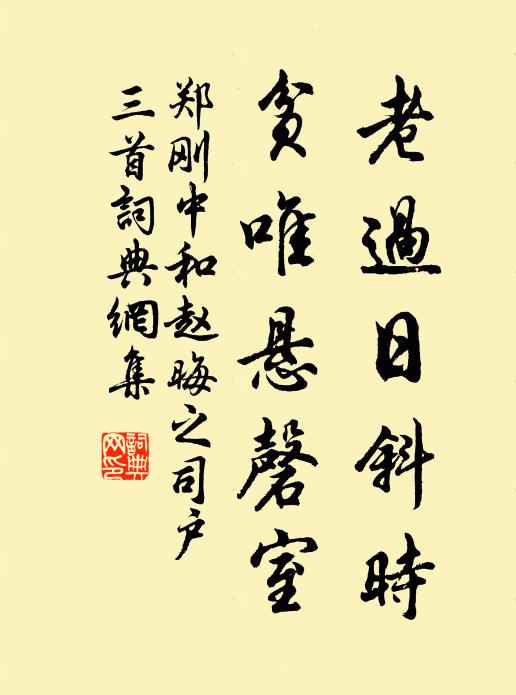 老過日斜時
貧唯悬磬室
郑刚中和赵晦之司户
三首詞典網集
詞典网印